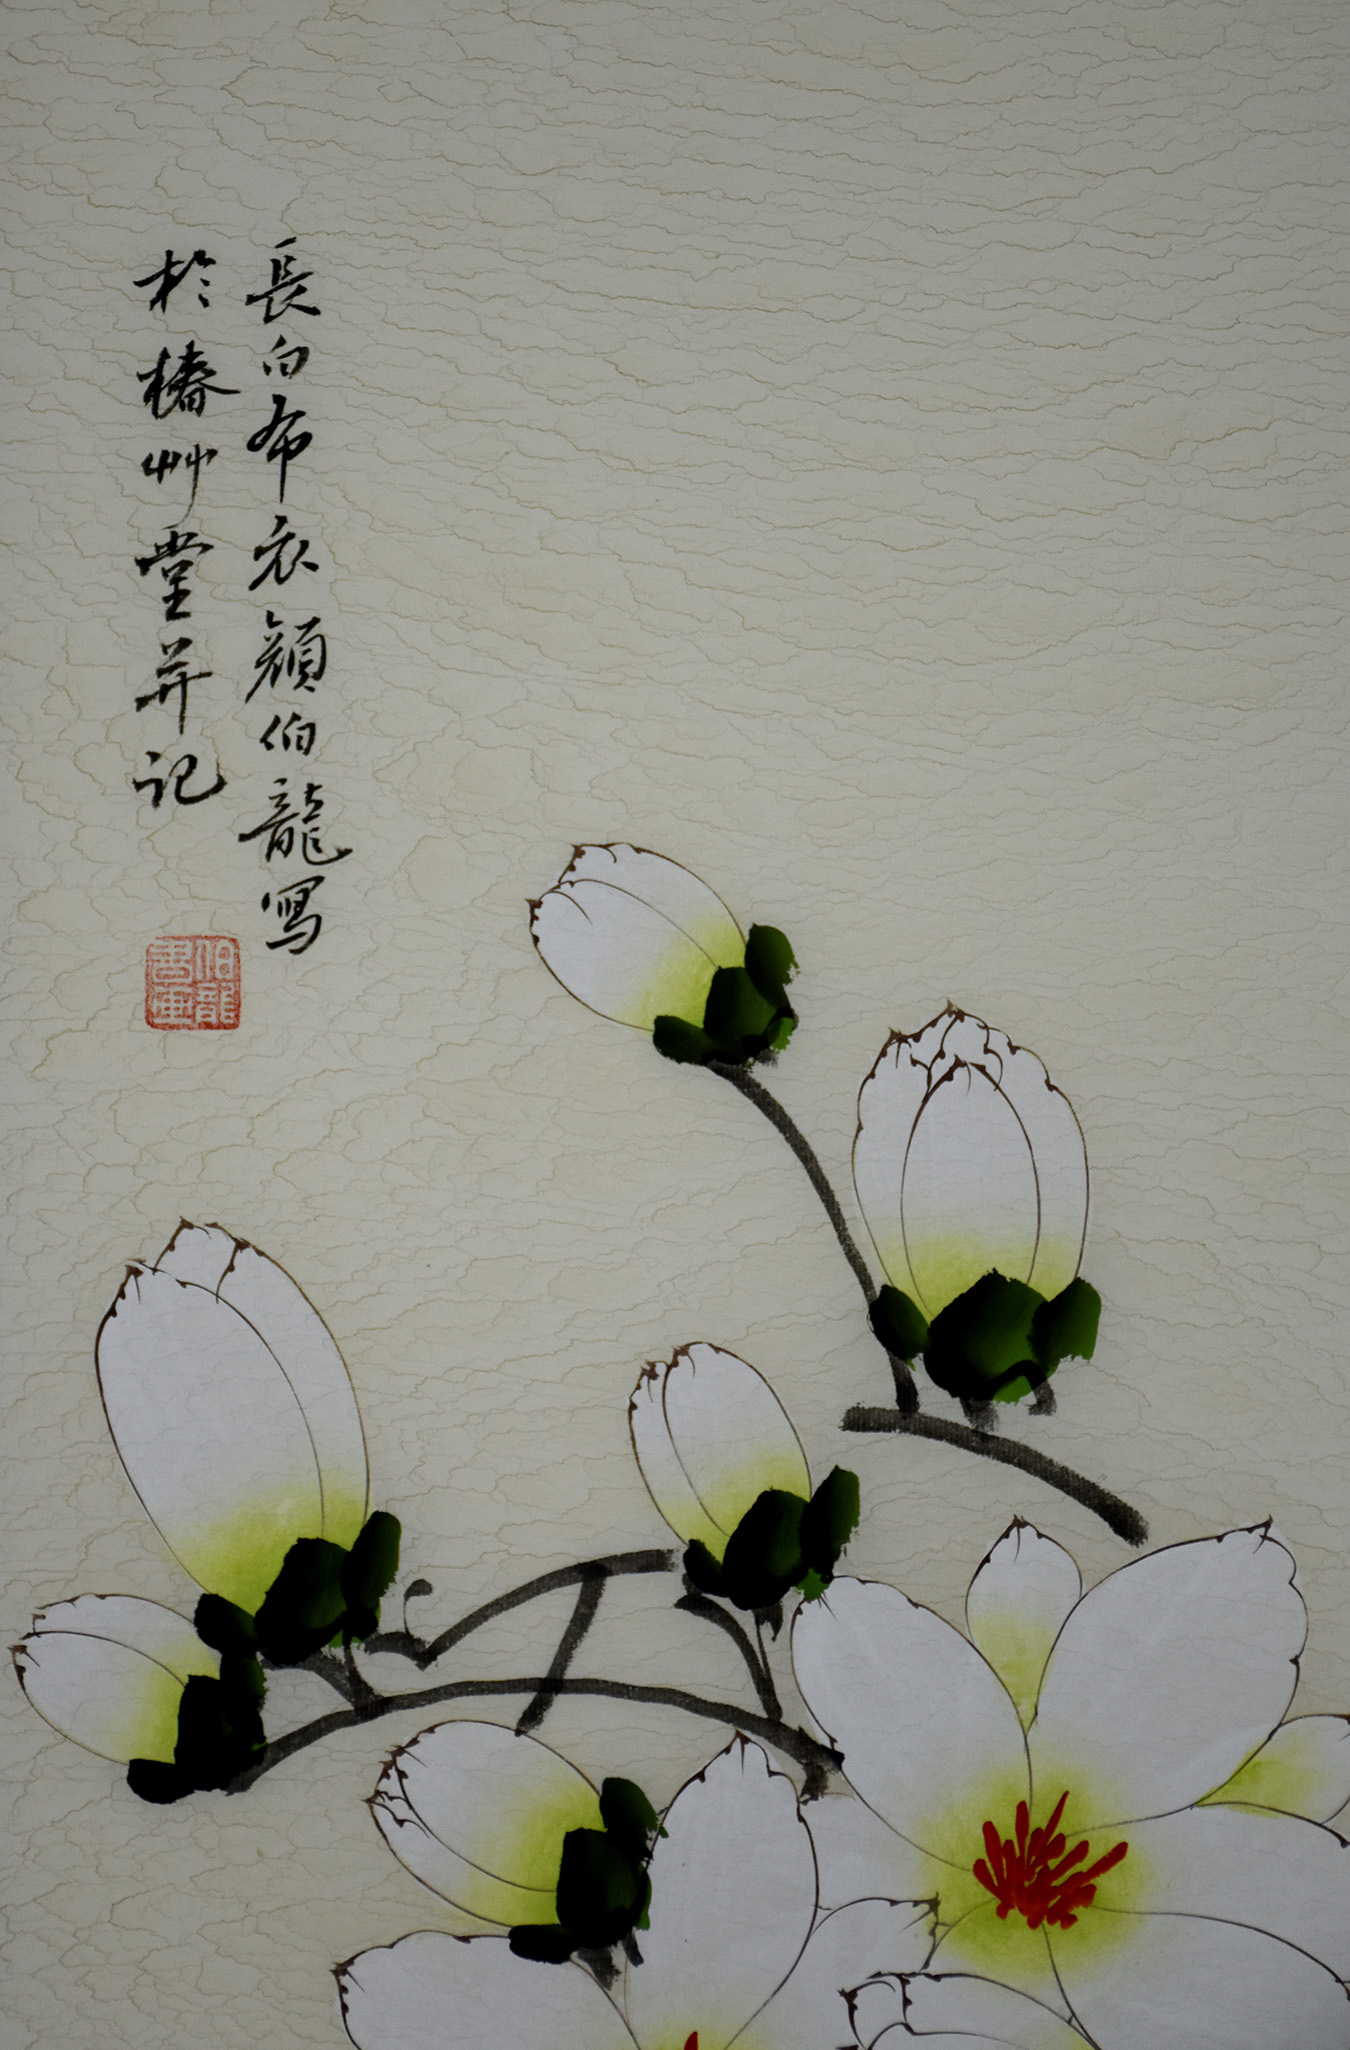 長白布衣顏伯龍寫
於椿艸堂并記
伯龍書畫